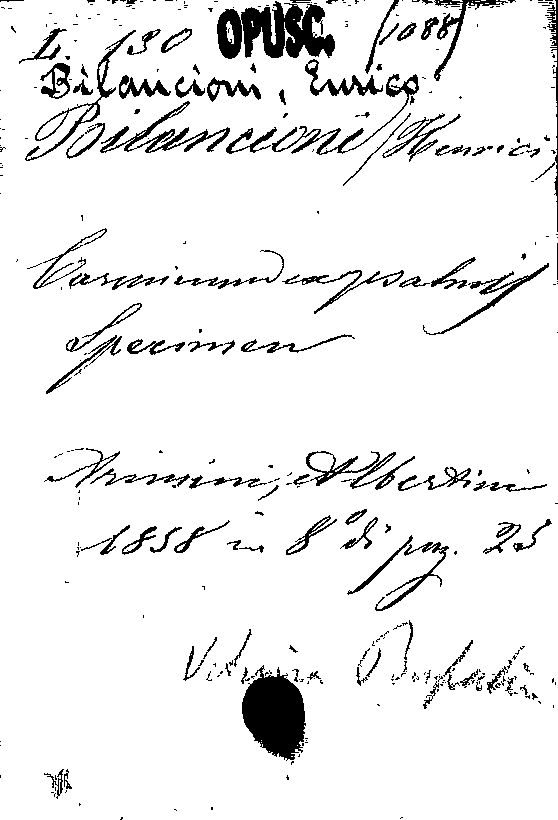 L. 130 OPUSC. (1088)
Bilancioni, Enrico
Bilancioni (Henrici)
Carminum ex psalmis
Specimen
Arimini, Albertini
1858 in 8° di pag. 25